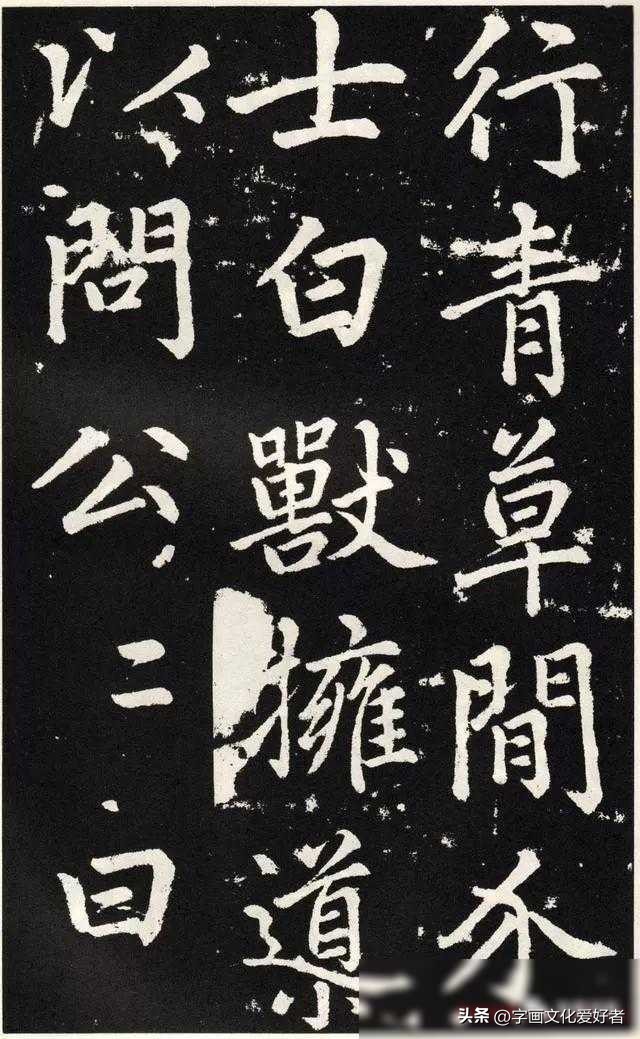 行青草間介
士白獸擁導
以問公二曰
头条 @字画文化爱好者